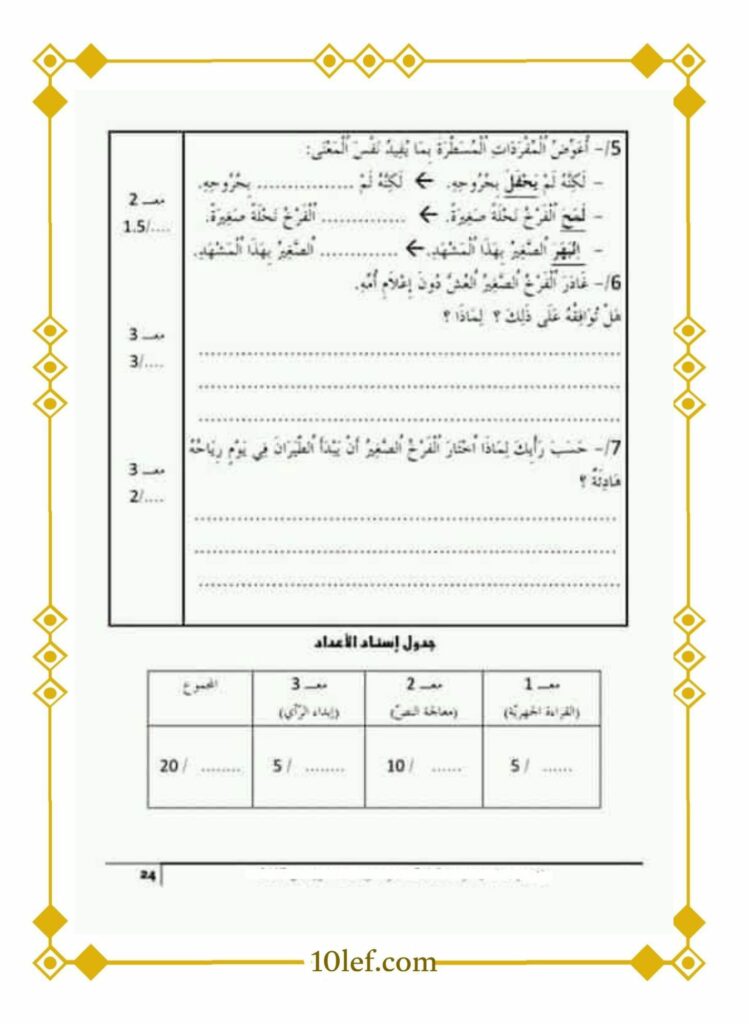 5/- أُعَوِّضُ ٱلْمُفْرَدَاتِ ٱلْمُسَطَّرَةَ بِمَا يُفِيدُ نَفْسَ ٱلْمَعْنَى:
- لَكِنَّهُ لَمْ يَحْفَلْ بِخُرُوجِهِ. ← لَكِنَّهُ لَمْ ................. بِخُرُوجِهِ.
- لَمَحَ ٱلْفَرْخُ نَحْلَةً صَغِيرَةً. ← ............... ٱلْفَرْخُ نَحْلَةً صَغِيرَةً.
- اِنْبَهَرَ ٱلصَّغِيرُ بِهَذَا ٱلْمَشْهَدِ. ← .............. ٱلصَّغِيرُ بِهَذَا ٱلْمَشْهَدِ.
معـ 2
1.5/....
6/- غَادَرَ ٱلْفَرْخُ ٱلصَّغِيرُ ٱلْعُشَّ دُونَ إِعْلَامِ أُمِّهِ.
هَلْ تُوَافِقُهُ عَلَى ذَلِكَ ؟ لِمَاذَا ؟
معـ 3
3/....
7/- حَسَبَ رَأْيِكَ لِمَاذَا اخْتَارَ ٱلْفَرْخُ ٱلصَّغِيرُ أَنْ يَبْدَأَ ٱلطَّيَرَانَ فِي يَوْمٍ رِيَاحُهُ
هَادِئَةٌ ؟
معـ 3
2/....
جدول إسناد الأعداد
معـ 1 معـ 2 معـ 3 المجموع
(القراءة الجهريّة) (معالجة النصّ) (إبداء الرّأي)
5 / ...... 10 / ...... 5 / ........ 20 / ........
24
10lef.com